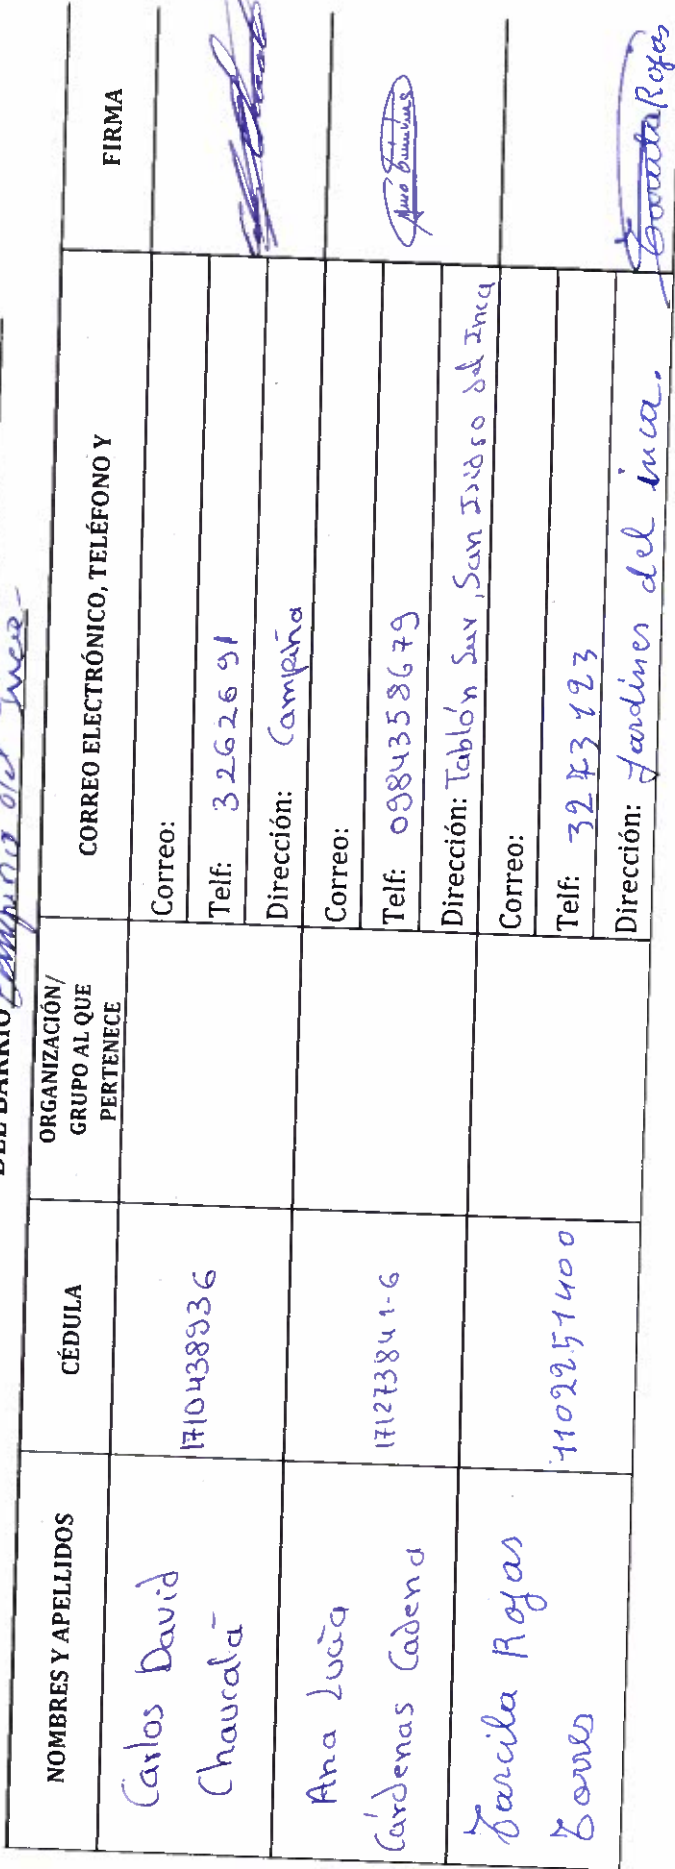 DEL BARRIO Campiña del Inca
NOMBRES Y APELLIDOS
CÉDULA
ORGANIZACIÓN/
GRUPO AL QUE
PERTENECE
CORREO ELECTRÓNICO, TELÉFONO Y
FIRMA
Carlos David
Chaucalá
1710438936
Correo:
Telf: 3262691
Dirección: Campiña
Ana Lucía
Cárdenas Cadena
171273841-6
Correo:
Telf: 0984358679
Dirección: Tablón Sur, San Isidro del Inca
Tarcila Rojas
Torres
1102251400
Correo:
Telf: 3273123
Dirección: Jardines del inca.
Rojas